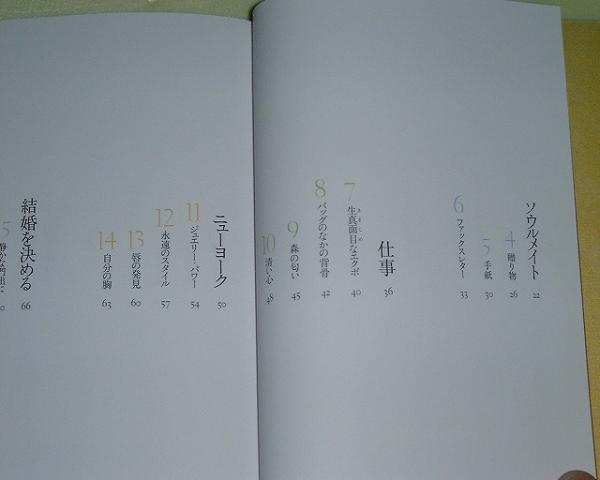 ソウルメイト 22
4 贈り物 26
5 手紙 30
6 ファックスレター 33
仕事 36
7 生真面目なエクボ 40
きまじめ
8 バッグのなかの背骨 42
9 森の匂い 45
10 清い心 48
ニューヨーク 50
11 ジュエリー・パワー 54
12 永遠のスタイル 57
13 唇の発見 60
14 自分の胸 63
結婚を決める 66